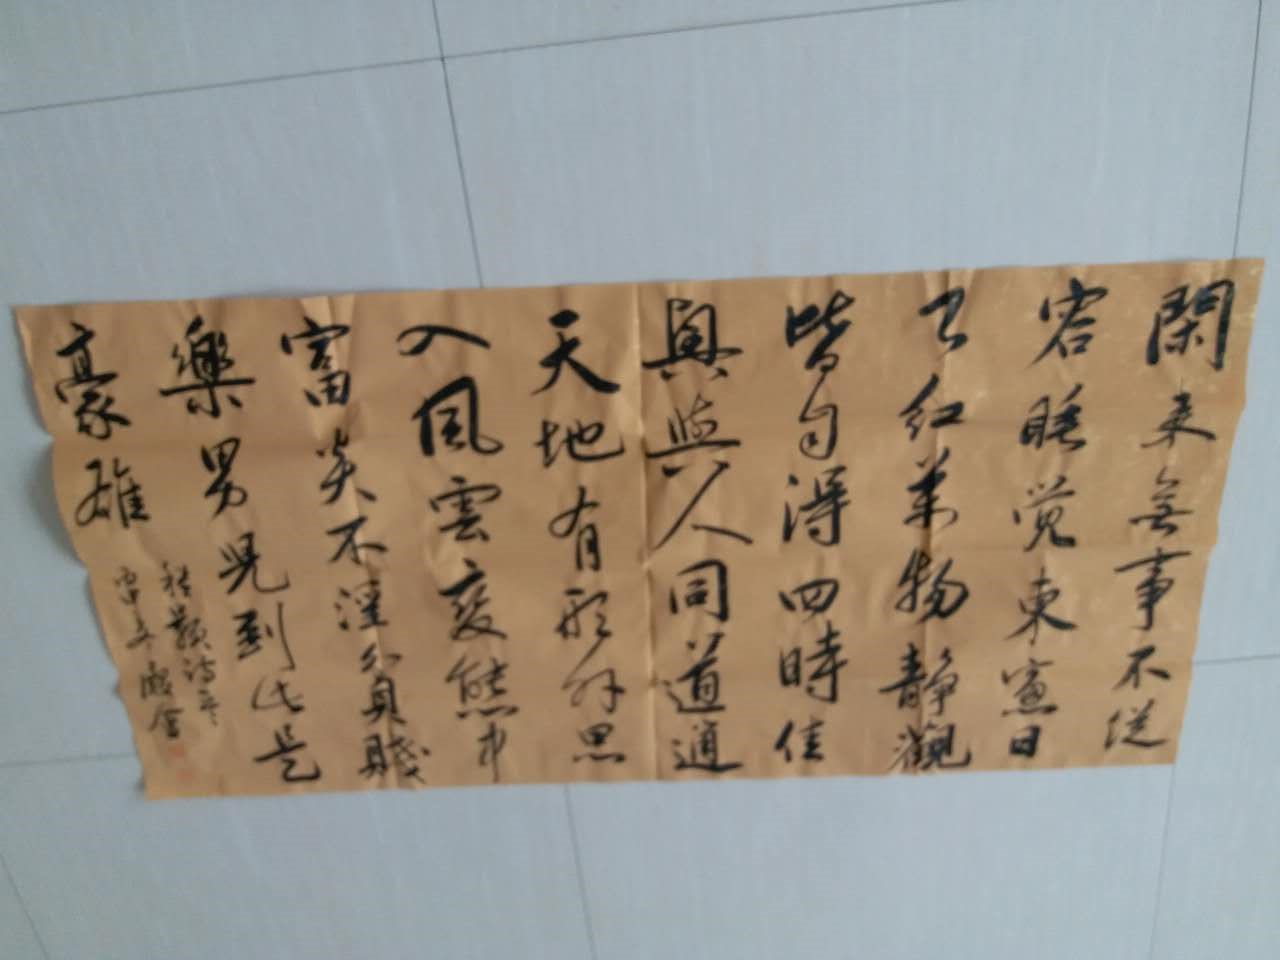 閑来無事不従
容睡觉東窓日
已红萬物静觀
皆自得四時佳
興與人同道通
天地有形外思
入風雲变態中
富贵不淫貧賤
樂男児到此是
豪雄
程颢诗一首